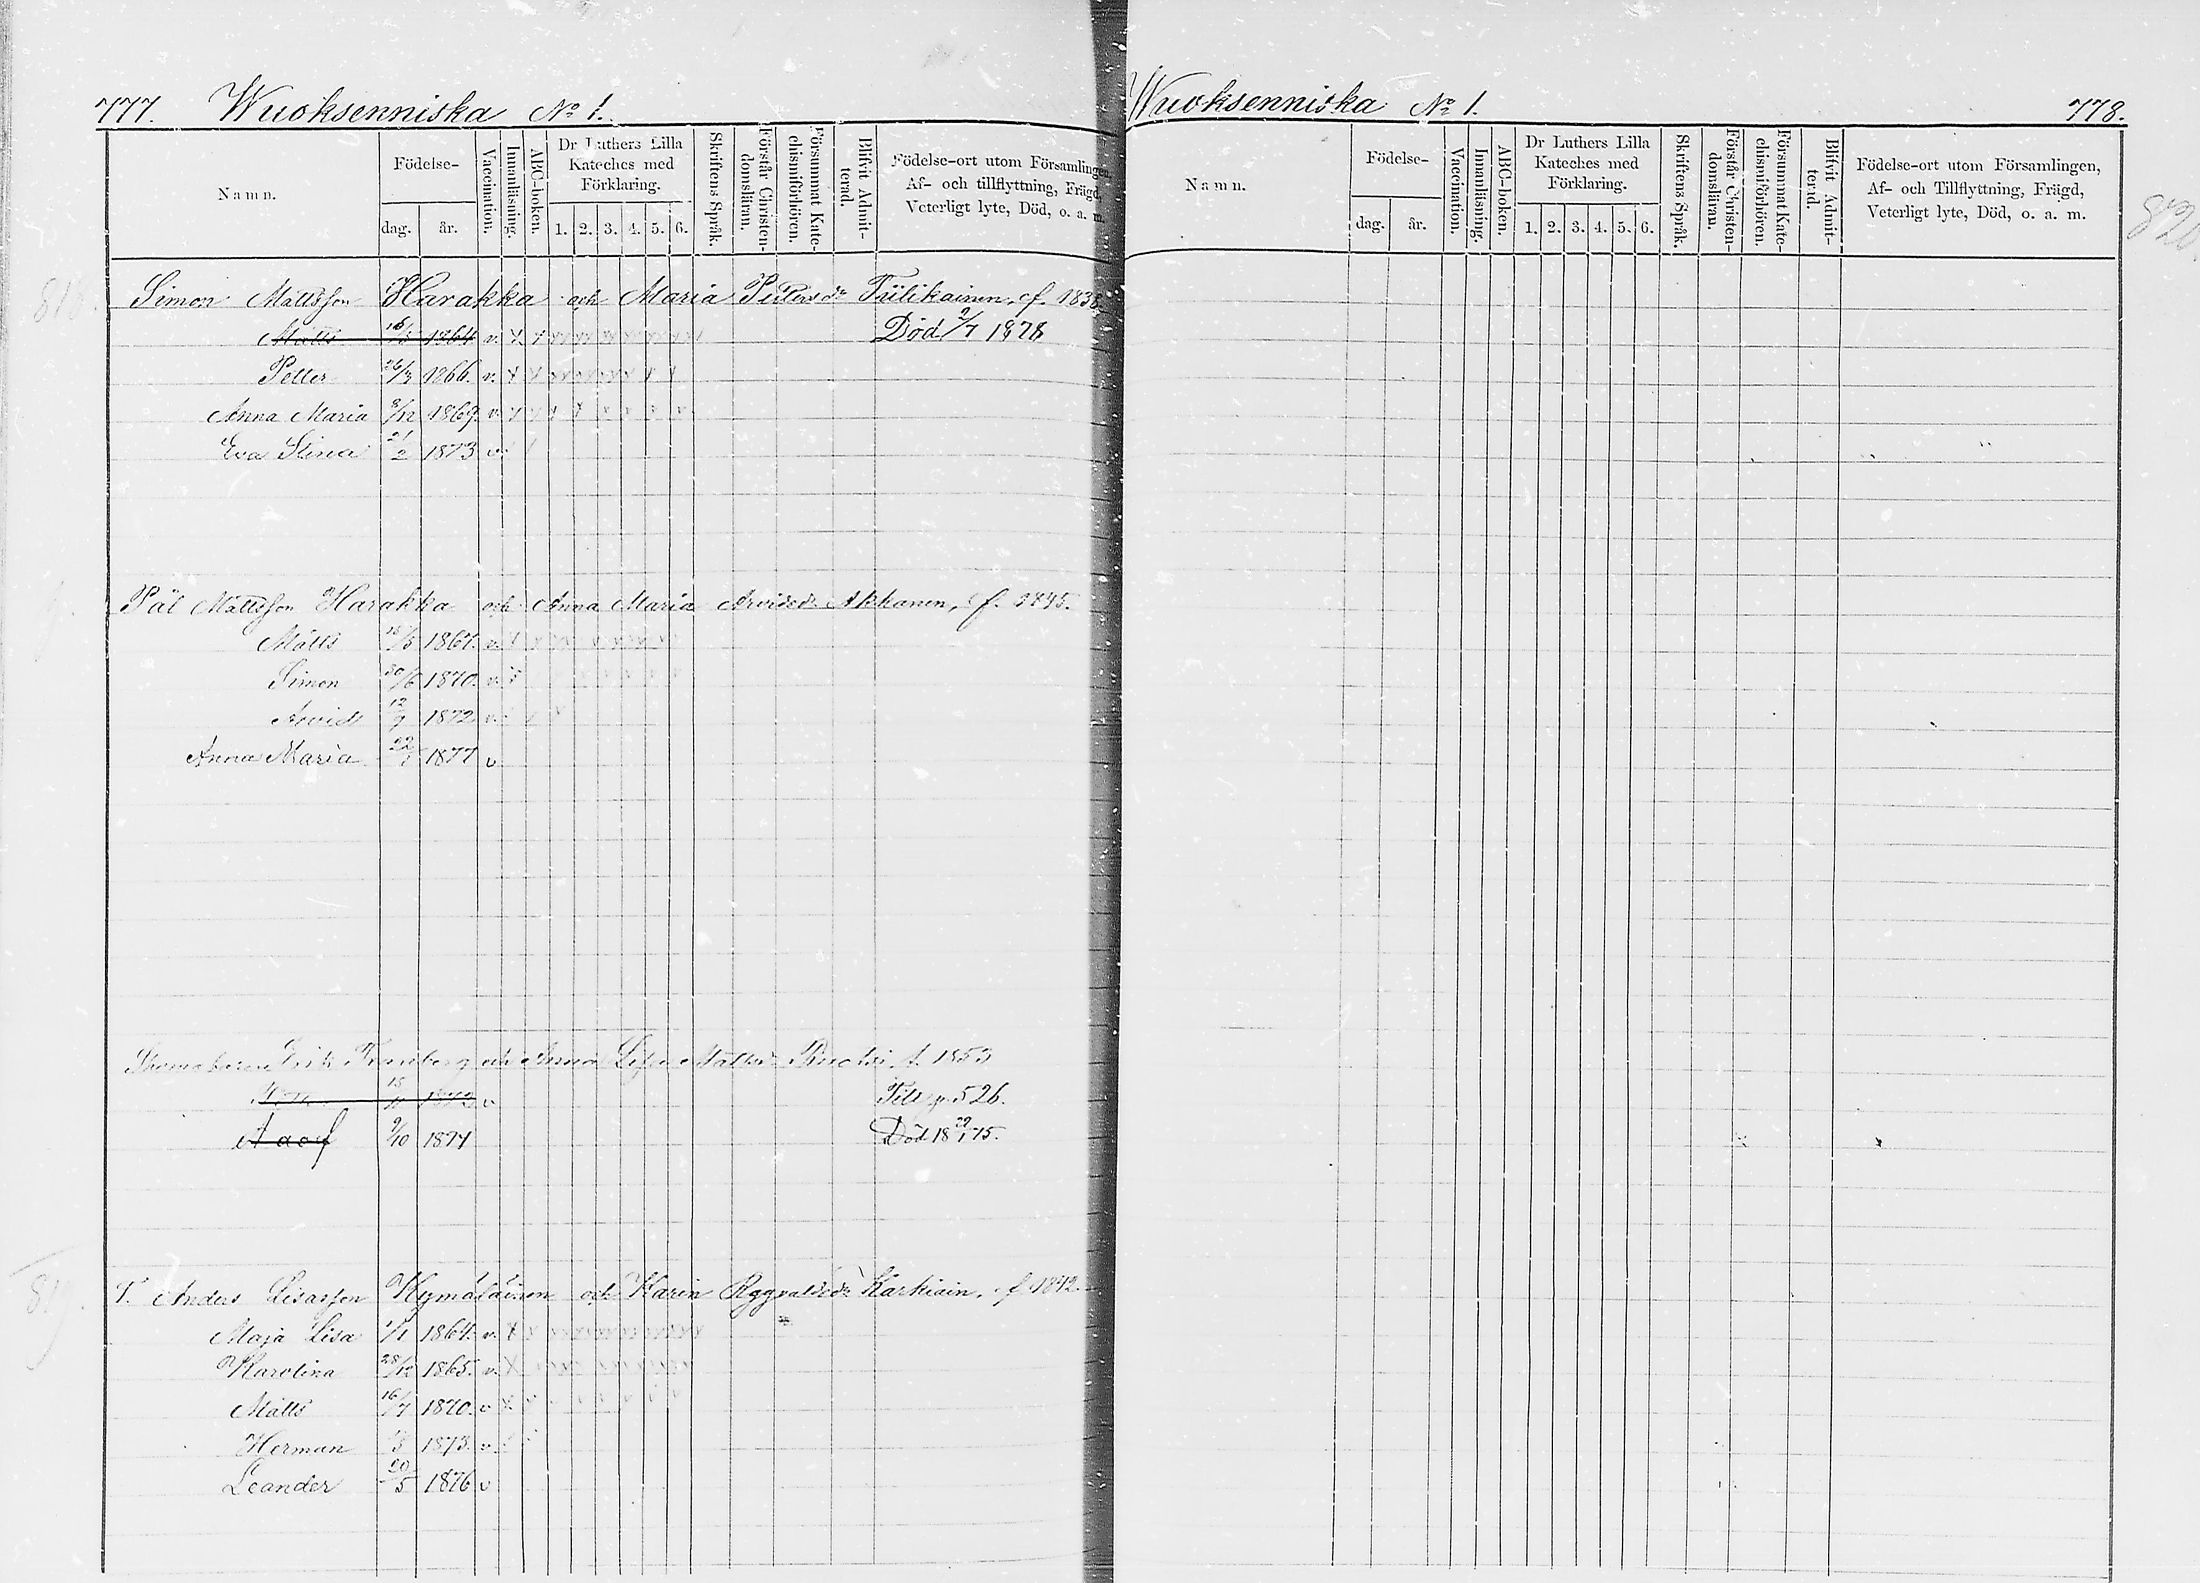 777. Wuoksenniska No 1.
Namn.
Födelse-
dag. år.
Vaccination.
Innanläsning.
ABC-boken.
Dr Luthers Lilla Kateches med Förklaring.
1. 2. 3. 4. 5. 6.
Skriftens Språk.
Förstår Christendomsläran.
Försummat Katechismiförhören.
Blifvit Admitterad.
Födelse-ort utom Församlingen,
Af- och tillflyttning, Frägd,
Veterligt lyte, Död, o. a. m.
Simon Mattsson Harakka och Maria Tiilikainen, f. 1838
Matts 1864 v. Död 2/7 1878
Petter 26/3 1866. v.
Anna Maria 8/12 1869. v.
Eva Stina 21/2 1873 v.
Pål Mattsson Harakka och Anna Maria Arvidsdr Akkanen, f. 1845.
Matts 15/5 1867. v.
Simon 30/6 1870. v.
Arvid 12/9 1872 v.
Anna Maria 1877 v
Erik och Anna Lisa Mattsdr f. 1853
1873 v Till p. 526.
Adolf 9/10 1874 Död 18 29/1 75.
T. Anders Hymäläinen och Karin f. 1842.
Maja Lisa 1/1 1864. v.
Karolina 28/12 1865. v.
Matts 16/7 1870. v
Herman 1873. v.
Leander 20/5 1876 v
Wuoksenniska No 1. 778.
Namn.
Födelse-
dag. år.
Vaccination.
Innanläsning.
ABC-boken.
Dr Luthers Lilla Kateches med Förklaring.
1. 2. 3. 4. 5. 6.
Skriftens Språk.
Förstår Christendomsläran.
Försummat Katechismiförhören.
Blifvit Admitterad.
Födelse-ort utom Församlingen,
Af- och Tillflyttning, Frägd,
Veterligt lyte, Död, o. a. m.
820